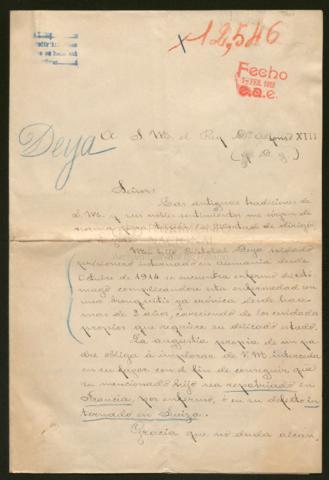 x12,546
Fecho
FEB. 1918
e.a.e.
Deya
A S. M. el Rey Dn Alfonso XIII
(q. D. g.)
Señor:
Las antiguas tradiciones de
V. M. y sus nobles sentimientos me sirven de
norma para
Mi hijo Deya soldado
prisionero internado en Alemania desde
Octubre de 1914 se encuentra enfermo del estó
mago complicandose esta enfermedad con
una bronquitis ya crónica desde hace
mas de 2 años, careciendo de los cuidados
propios que requiere su delicado estado.
La angustia propia de un pa
dre obliga á implorar de V. M. interceda
en su favor con el fin de conseguir que
su mencionado hijo sea repatriado en
Francia, por enfermo, ó en su defecto in
ternado en Suiza.
Gracia que no duda alcan